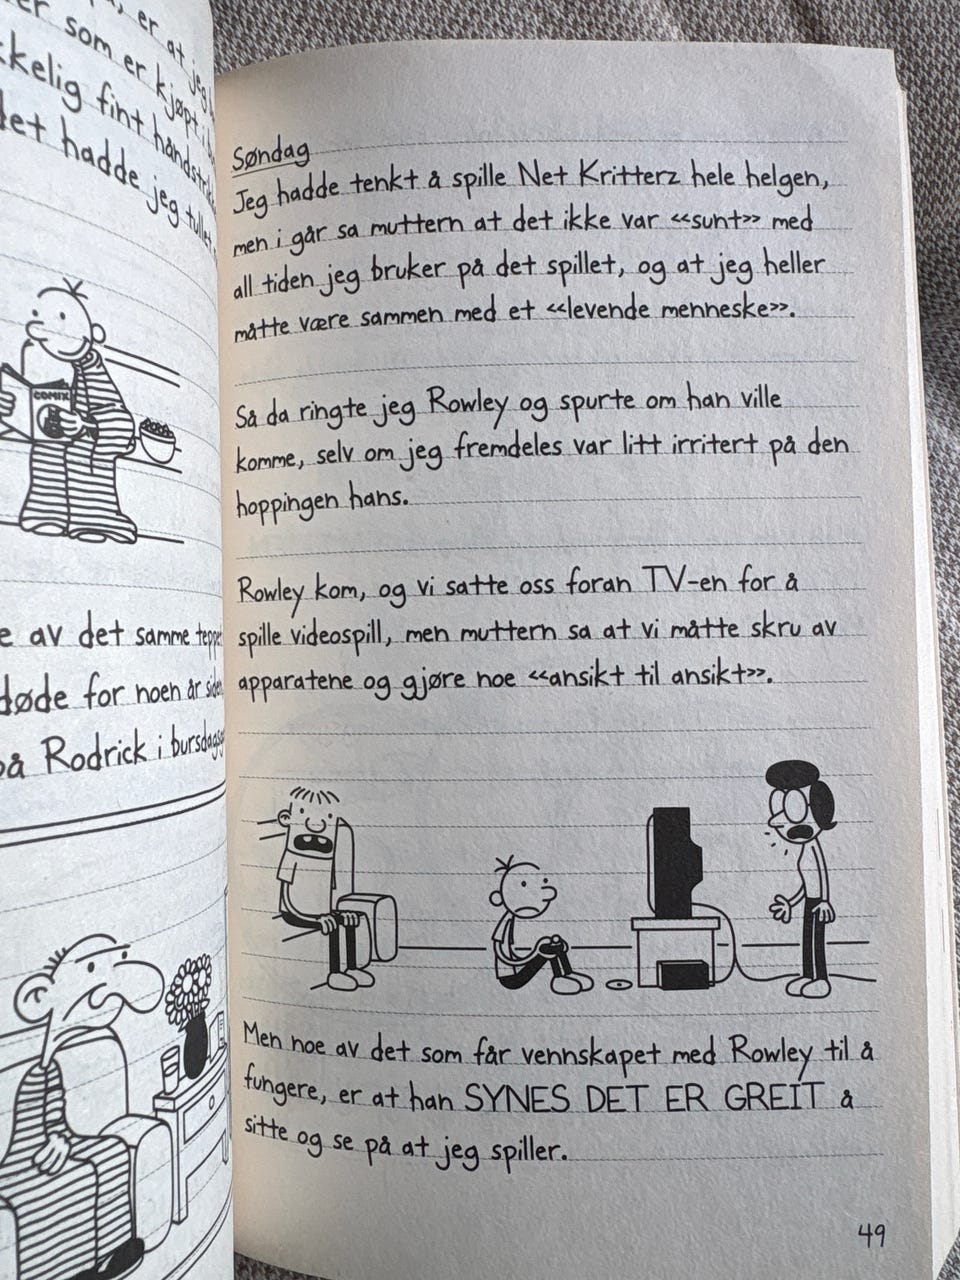 er som er kjøpt i
fint håndstrikk
det hadde jeg tullet
COMIX
av det samme
døde for noen år siden
på Rodrick i
Søndag
Jeg hadde tenkt å spille Net Kritterz hele helgen,
men i går sa muttern at det ikke var «sunt» med
all tiden jeg bruker på det spillet, og at jeg heller
måtte være sammen med et «levende menneske».
Så da ringte jeg Rowley og spurte om han ville
komme, selv om jeg fremdeles var litt irritert på den
hoppingen hans.
Rowley kom, og vi satte oss foran TV-en for å
spille videospill, men muttern sa at vi måtte skru av
apparatene og gjøre noe «ansikt til ansikt».
Men noe av det som får vennskapet med Rowley til å
fungere, er at han SYNES DET ER GREIT å
sitte og se på at jeg spiller.
49